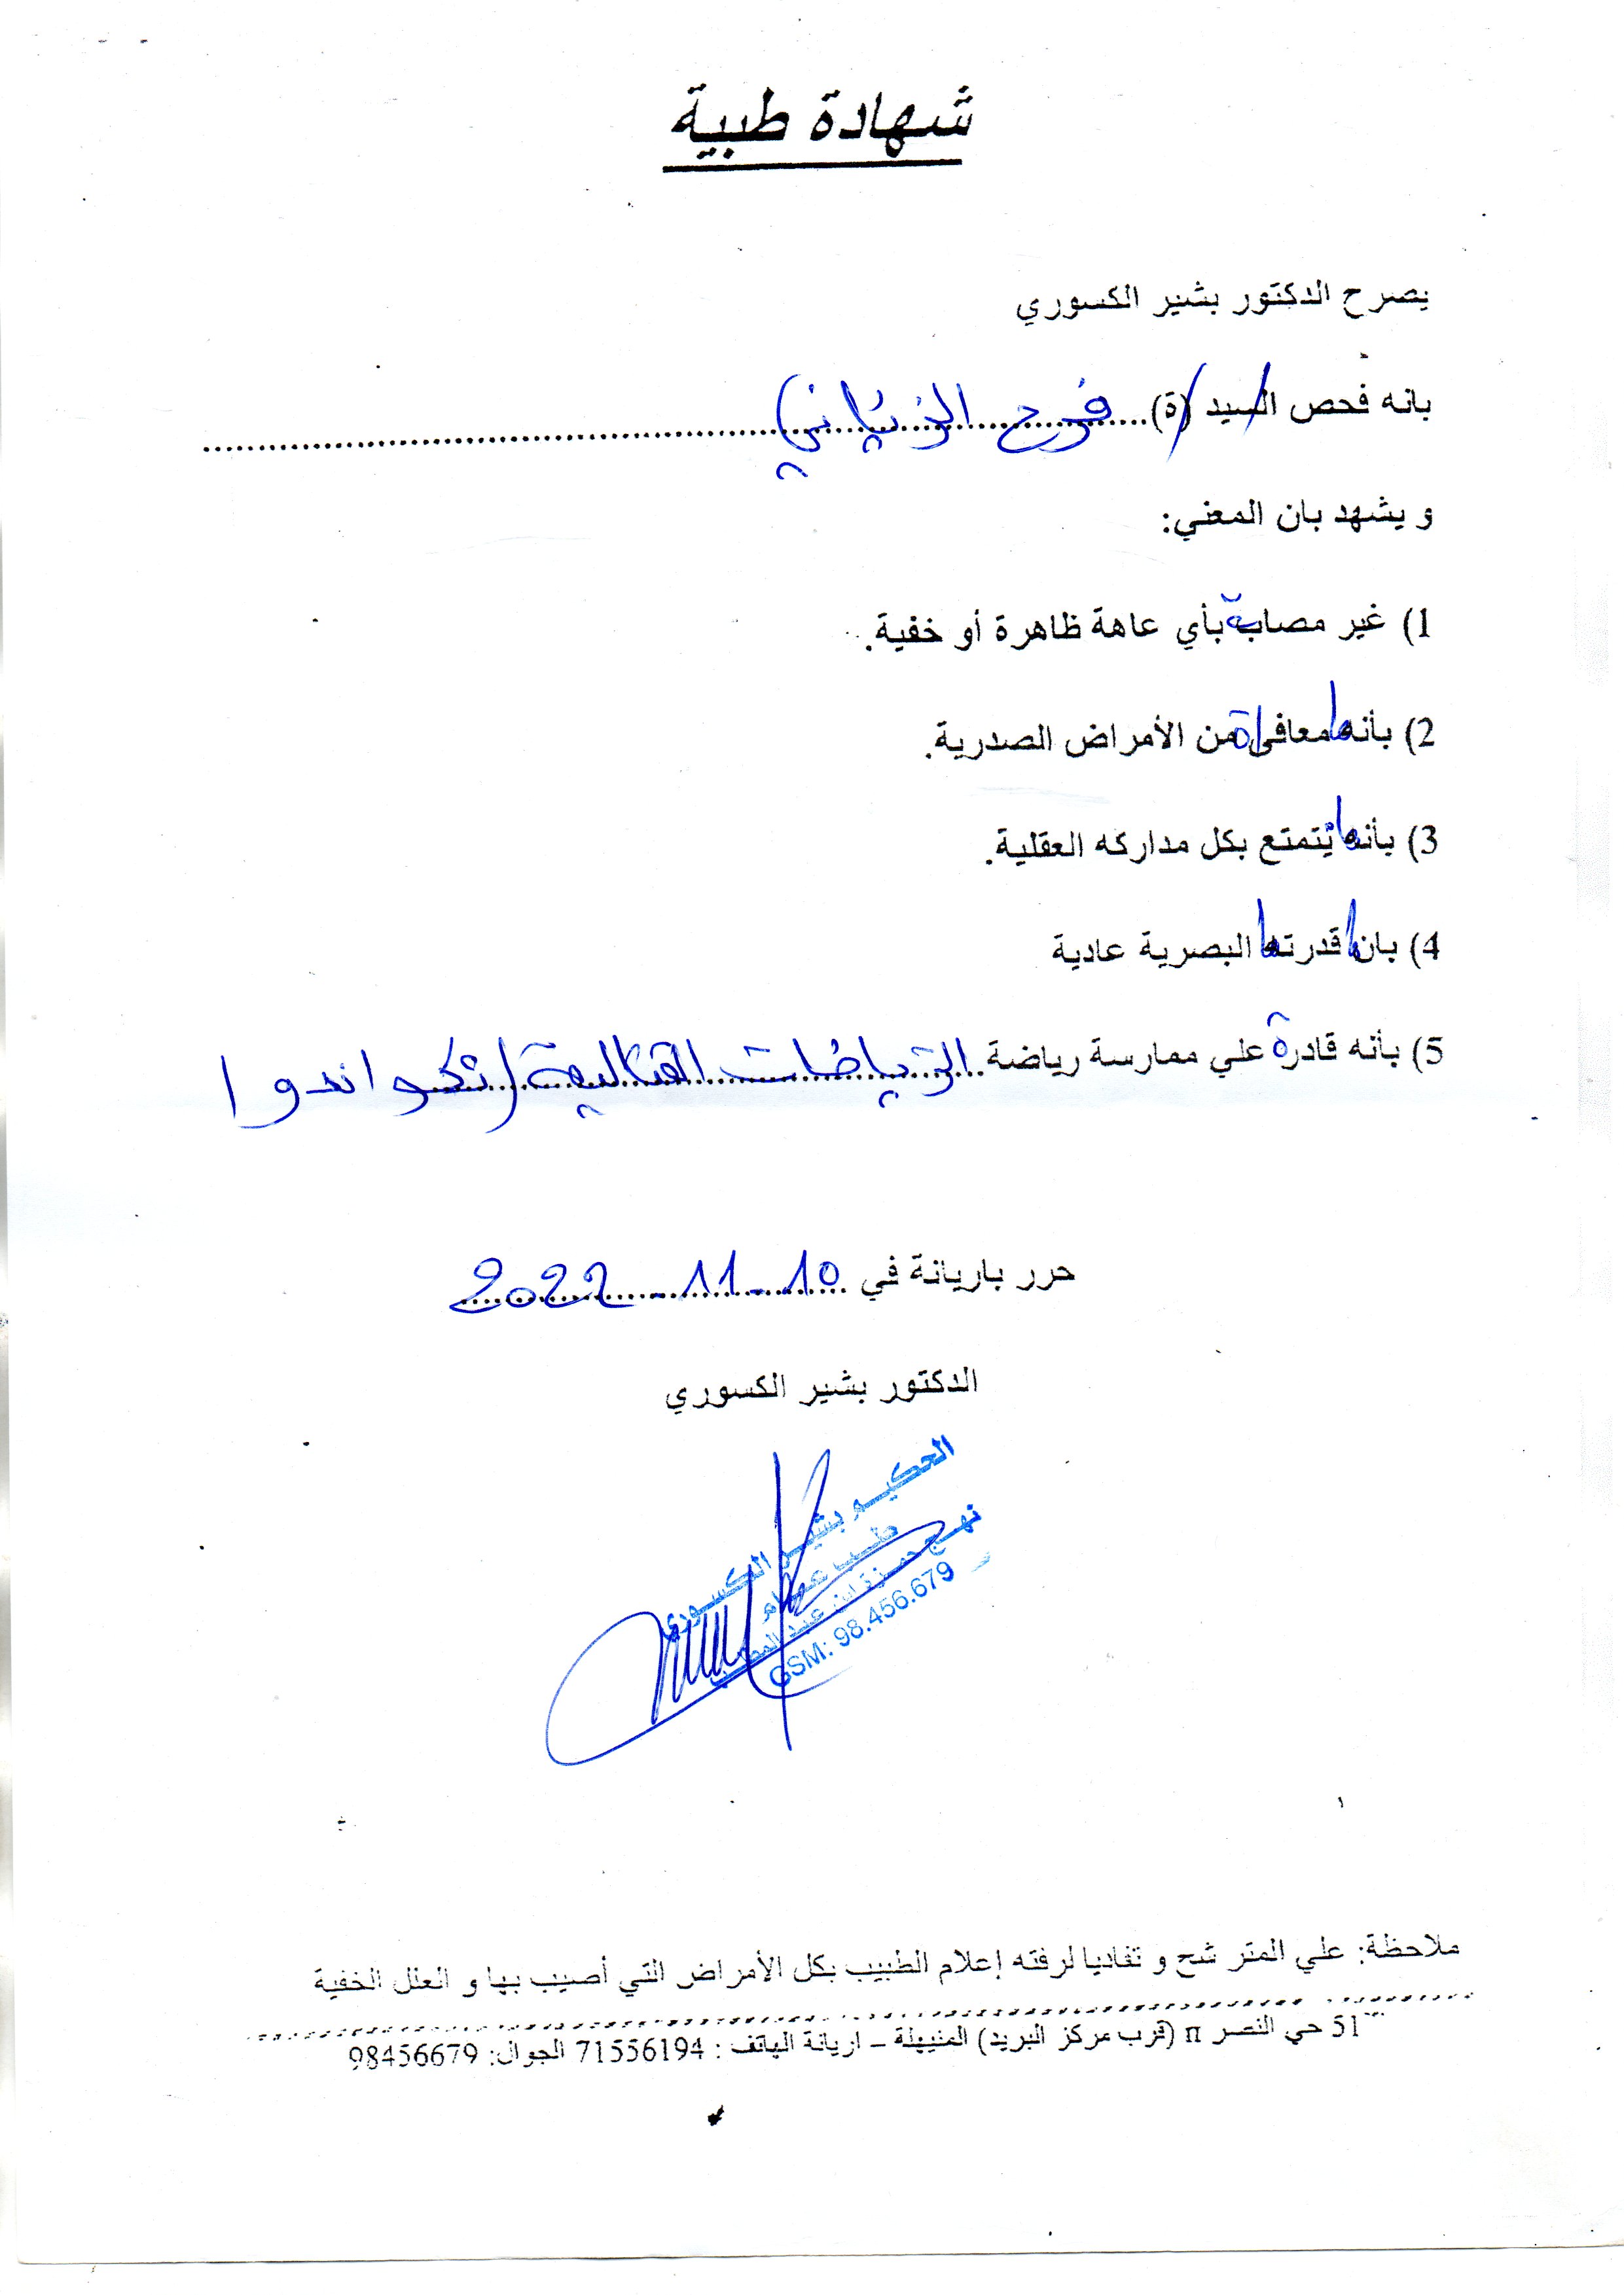 شهادة طبية
يصرح الدكتور بشير الكسوري
بانه فحص السيد (ة)......فرح الزياني......
و يشهد بان المعني:
1) غير مصابة بأي عاهة ظاهرة أو خفية.
2) بأنها معافاة من الأمراض الصدرية.
3) بأنها يتمتع بكل مداركه العقلية.
4) بانها قدرتها البصرية عادية
5) بأنه قادرة علي ممارسة رياضة الرياضات القتالية (تكواندوا)
حرر باريانة في 10-11-2022
الدكتور بشير الكسوري
الحكيم بشير الكسوري
طب عام
نهج حمزة ابن عبد المطلب
GSM: 98.456.679
ملاحظة: علي المتر شح و تفاديا لرفته إعلام الطبيب بكل الأمراض التي أصيب بها و العلل الخفية
51 حي النصر II (قرب مركز البريد) المنيهلة – اريانة الهاتف : 71556194 الجوال: 98456679